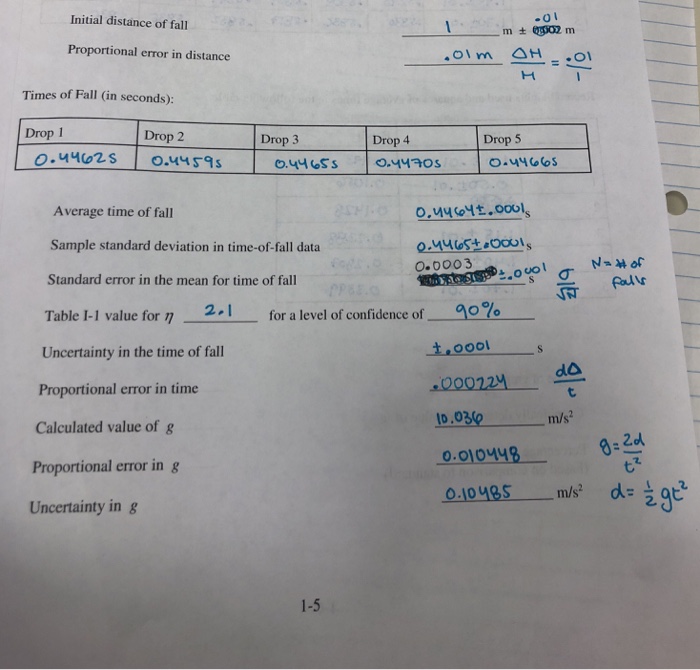 Initial distance of fall 1 m ± .01 m
Proportional error in distance .01m ΔH/H = .01/1
Times of Fall (in seconds):
Drop 1 Drop 2 Drop 3 Drop 4 Drop 5
0.4462s 0.4459s 0.4465s 0.4470s 0.4466s
Average time of fall 0.4464±.0001 s
Sample standard deviation in time-of-fall data 0.4465±.0001 s
Standard error in the mean for time of fall 0.0003 ±.0001 s σ/√N N = # of falls
Table I-1 value for η 2.1 for a level of confidence of 90%
Uncertainty in the time of fall ±.0001 s
Proportional error in time .000224 dΔ/t
Calculated value of g 10.036 m/s²
Proportional error in g 0.010448 g = 2d/t²
Uncertainty in g 0.10485 m/s² d = ½ gt²
1-5